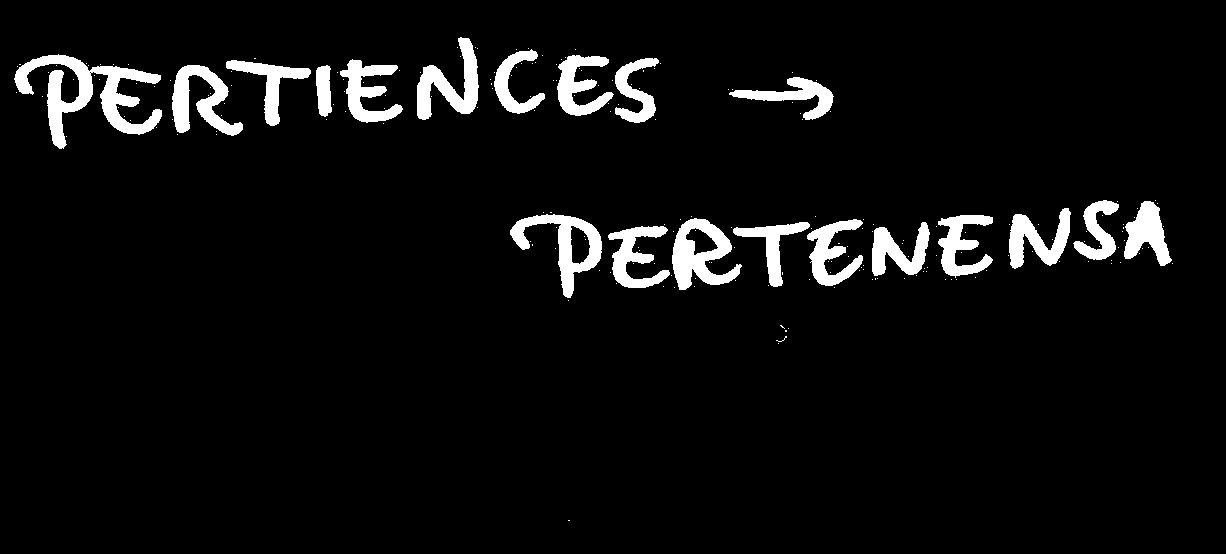 PERTIENCES →
PERTENENSA